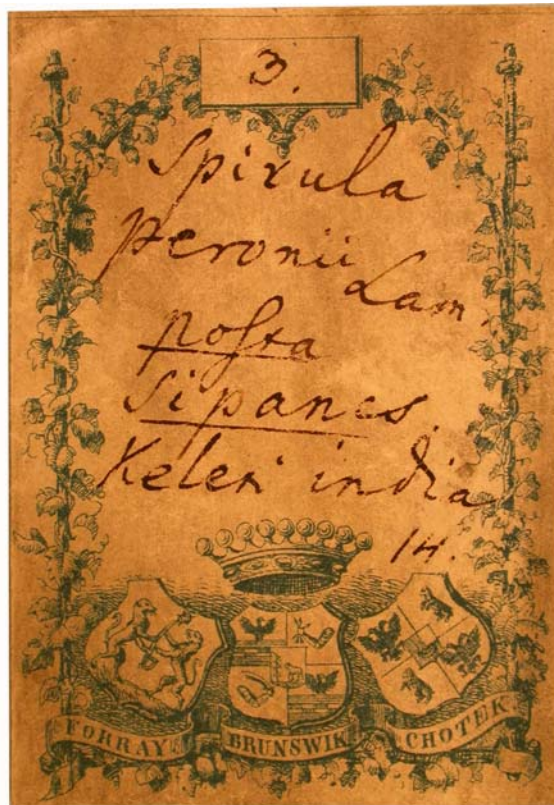 3.
Spirula
peronii
Lam.
posta
Sipancs.
Keleti india
14.
FORRAY BRUNSWIK CHOTEK